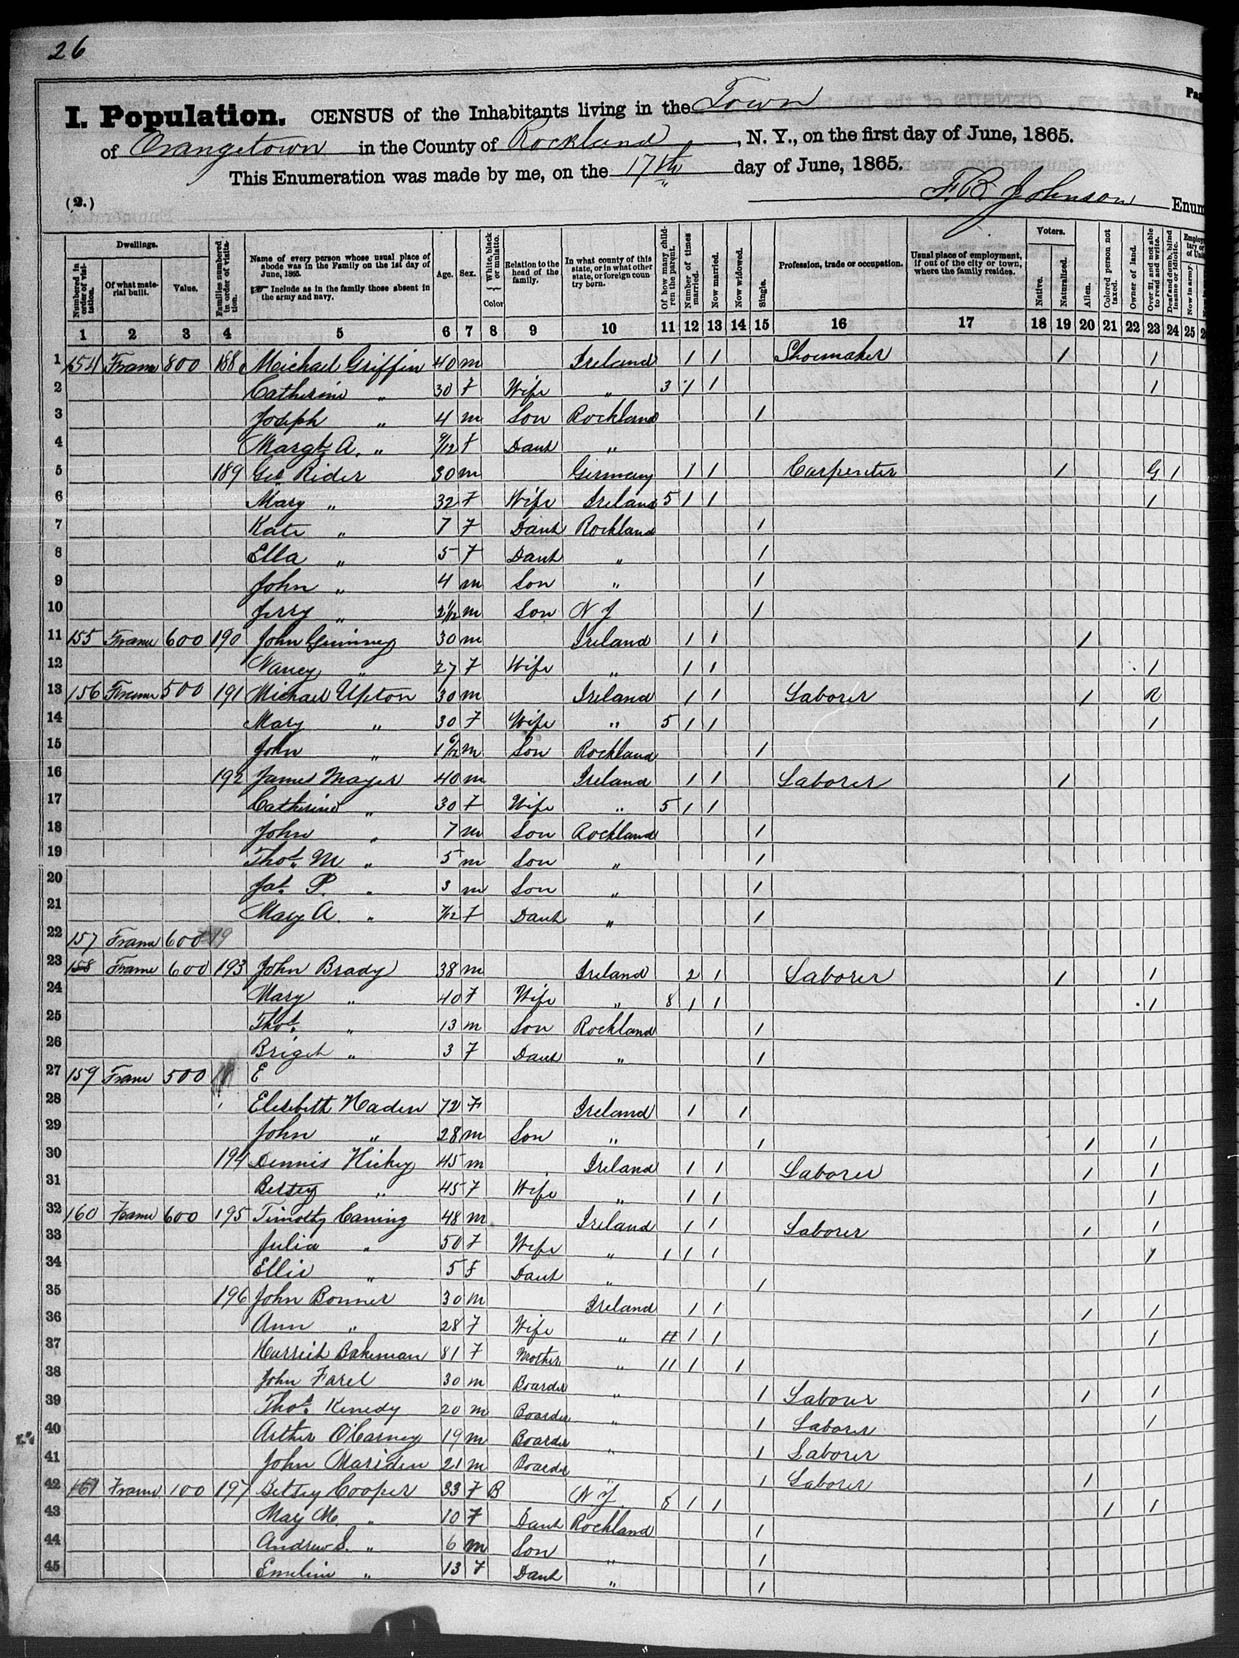 26
Pag
I. Population. CENSUS of the Inhabitants living in the Town
of Orangetown in the County of Rockland, N. Y., on the first day of June, 1865.
This Enumeration was made by me, on the 17th day of June, 1865.
(2.) F. B. Johnson Enum
Dwellings. Voters.
Numbered in order of visitations. Of what material built. Value. Families numbered in order of visitation. Name of every person whose usual place of abode was in the Family on the 1st day of June, 1865. Include as in the family those absent in the army and navy. Age. Sex. White, black or mulatto. Color Relation to the head of the family. In what county of this state, or in what other state, or foreign country born. Of how many children the parent. Number of times married. Now married. Now widowed. Single. Profession, trade or occupation. Usual place of employment, if out of the city or town, where the family resides. Native. Naturalized. Alien. Colored person not taxed. Owner of land. Over 21, and not able to read and write. Now in army.
1 2 3 4 5 6 7 8 9 10 11 12 13 14 15 16 17 18 19 20 21 22 23 24 25
1 154 Frame 800 188 Michael Griffin 40 m Ireland 1 1 Shoemaker 1 1
2 Catherine " 30 f Wife " 3 1 1 1
3 Joseph " 4 m Son Rockland 1
4 Margt A. " 9/12 f Dauh "
5 189 Geo Rider 30 m Germany 1 1 Carpenter 1 G 1
6 Mary " 32 F Wife Ireland 5 1 1 1
7 Kate " 7 F Dauh Rockland 1
8 Ella " 5 F Dauh " 1
9 John " 4 m Son " 1
10 Jerry " m Son N Y 1
11 155 Frame 600 190 John 30 m Ireland 1 1 1
12 Nancy " 27 F Wife " 1 1 1
13 156 Frame 500 191 Michael Upton 30 m Ireland 1 1 Laborer 1
14 Mary " 30 F Wife " 5 1 1 1
15 John " m Son Rockland 1
16 192 James Mayer 40 m Ireland 1 1 Laborer 1
17 Catherine " 30 F Wife " 5 1 1
18 John " 7 m Son Rockland 1
19 Thos. M " 5 m Son " 1
20 Jas. P. " 3 m Son " 1
21 Mary A. " F Dauh " 1
22 157 Frame 600 19
23 158 Frame 600 193 John Brady 38 m Ireland 2 1 Laborer 1 1
24 Mary " 40 F Wife " 8 1 1 1
25 Thos. " 13 m Son Rockland 1
26 Briget " 3 F Dauh " 1
27 159 Frame 500 E
28 Elesibeth Haden 72 F Ireland 1 1
29 John " 28 m Son " 1 1 1
30 194 Dennis Hickey 45 m Ireland 1 1 Laborer 1 1
31 Betsey " 45 F Wife " 1 1 1
32 160 Frame 600 195 Timothy Caning 48 m Ireland 1 1 Laborer 1 1
33 Julia " 50 F Wife " 1 1 1 1
34 Ellie " 5 f Dauh " 1
35 196 John Bonner 30 m Ireland 1 1 1 1
36 Ann " 28 F Wife " 1 1 1
37 Harrieh Bakeman 81 F Mother " 11 1 1
38 John Farel 30 m Boarder " 1 Labour 1 1
39 Thos. Kenedy 20 m Boarder " 1 Laborer 1
40 Arther O'Carney 19 m Boarder " 1 Laborer
41 John Mariden 21 m Boarder " 1 Laborer 1
42 161 Frame 100 197 Betsey Cooper 33 F B N Y. 8 1 1 1 1
43 May M " 10 F Dauh Rockland 1
44 Andrew S. " 6 m Son " 1
45 Emeline " 13 F Dauh " 1